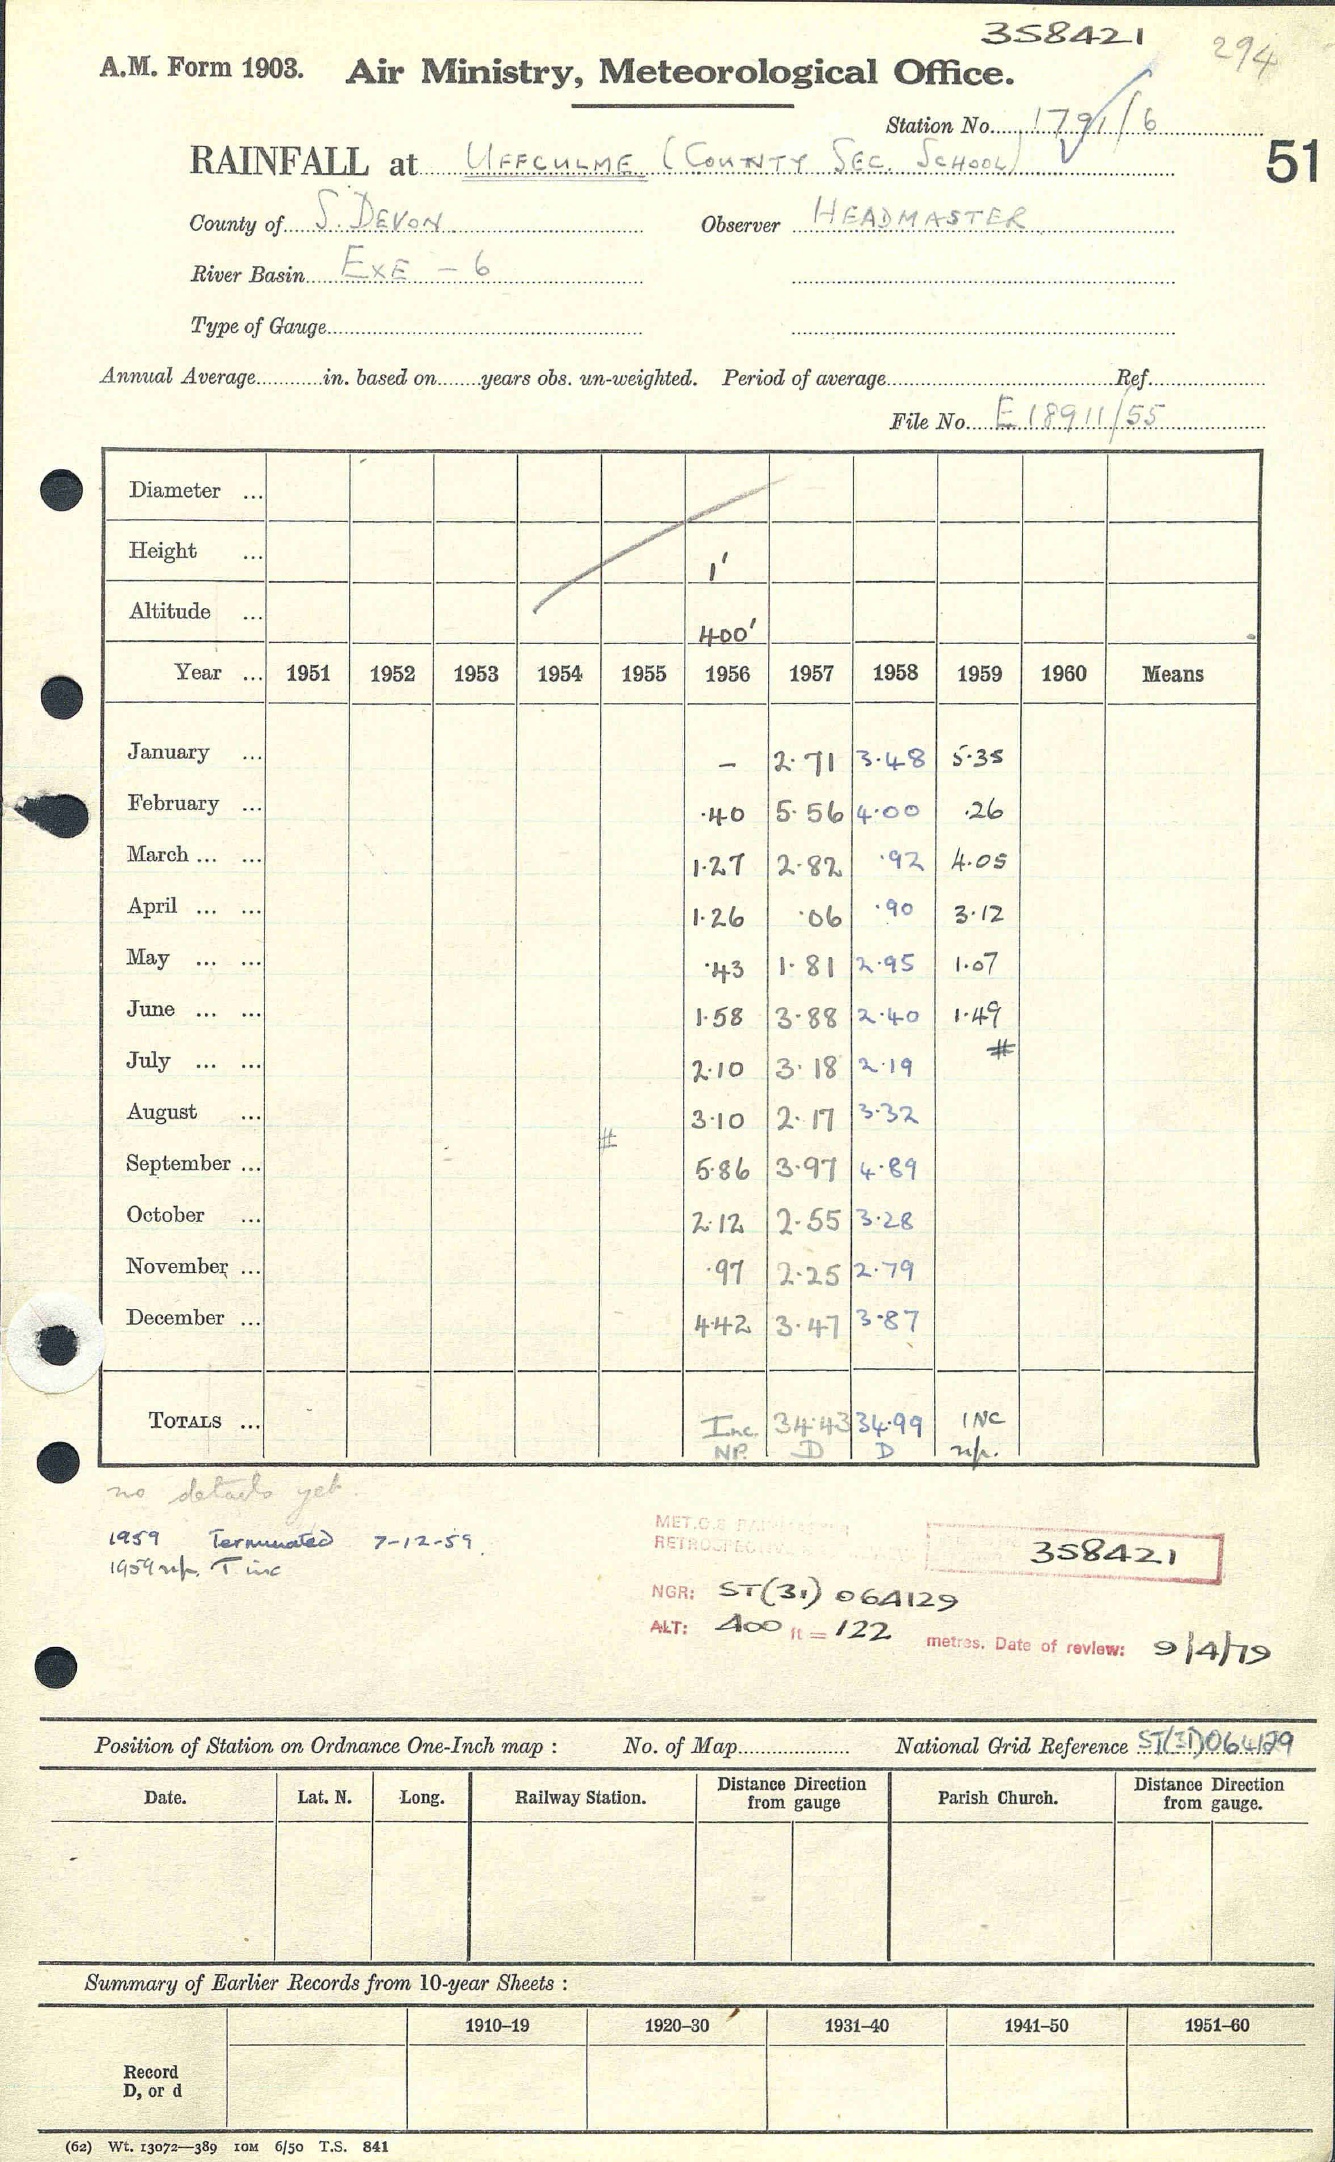 358421
294
A.M. Form 1903. Air Ministry, Meteorological Office.
Station No. 1791/6
RAINFALL at UFFCULME (COUNTY SEC. SCHOOL)
51
County of S. DEVON Observer HEADMASTER
River Basin EXE - 6
Type of Gauge
Annual Average in. based on years obs. un-weighted. Period of average Ref.
File No. E18911/55
Diameter ...
Height ... 1'
Altitude ... 400'
Year ... 1951 1952 1953 1954 1955 1956 1957 1958 1959 1960 Means
January ... – 2.71 3.48 5.35
February ... .40 5.56 4.00 .26
March ... ... 1.27 2.82 .92 4.05
April ... ... 1.26 .06 .90 3.12
May ... ... .43 1.81 2.95 1.07
June ... ... 1.58 3.88 2.40 1.49
#
July ... ... 2.10 3.18 2.19
August ... 3.10 2.17 3.32
#
September ... 5.86 3.97 4.89
October ... 2.12 2.55 3.28
November ... .97 2.25 2.79
December ... 4.42 3.47 3.87
TOTALS ... Inc. 34.43 34.99 INC
NP. D D np.
no details yet.
1959 Terminated 7-12-59.
1959 np. T inc
MET.O.8
358421
NGR: ST(31) 064129
ALT: 400 ft = 122 metres. Date of review: 9/4/79
Position of Station on Ordnance One-Inch map : No. of Map National Grid Reference ST(31)064129
Date. Lat. N. Long. Railway Station. Distance Direction from gauge Parish Church. Distance Direction from gauge.
Summary of Earlier Records from 10-year Sheets :
1910–19 1920–30 1931–40 1941–50 1951–60
Record
D, or d
(62) Wt. 13072—389 10M 6/50 T.S. 841